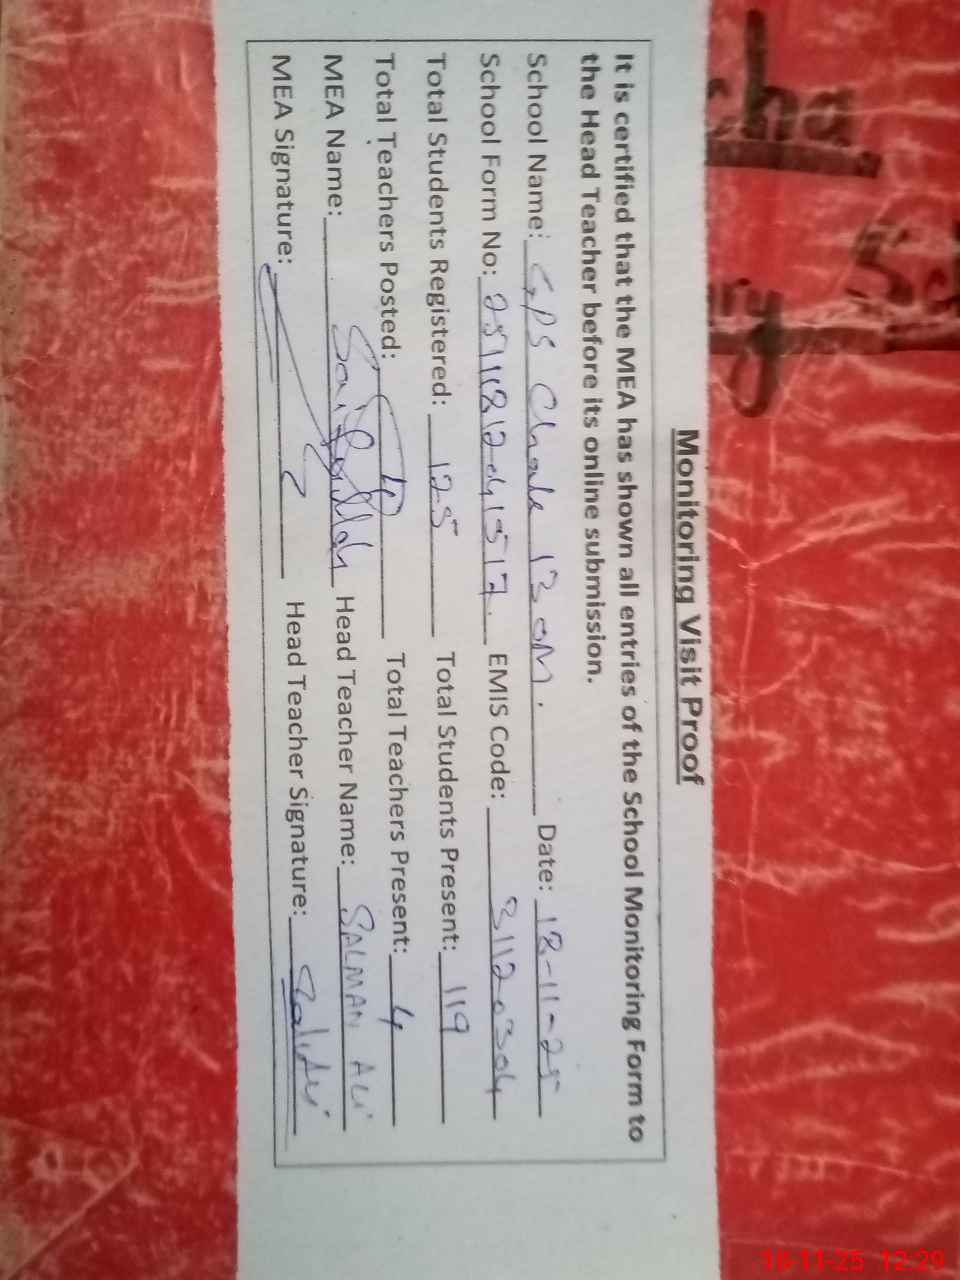 Monitoring Visit Proof
It is certified that the MEA has shown all entries of the School Monitoring Form to
the Head Teacher before its online submission.
School Name: GPS Chak 13 on. Date: 18-11-25
School Form No: EMIS Code: 31120304
Total Students Registered: 125 Total Students Present: 119
Total Teachers Posted: 4 Total Teachers Present: 4
MEA Name: Head Teacher Name: SALMAN ALI
MEA Signature: Head Teacher Signature:
cha
ry Sc
18-11-25 12:29